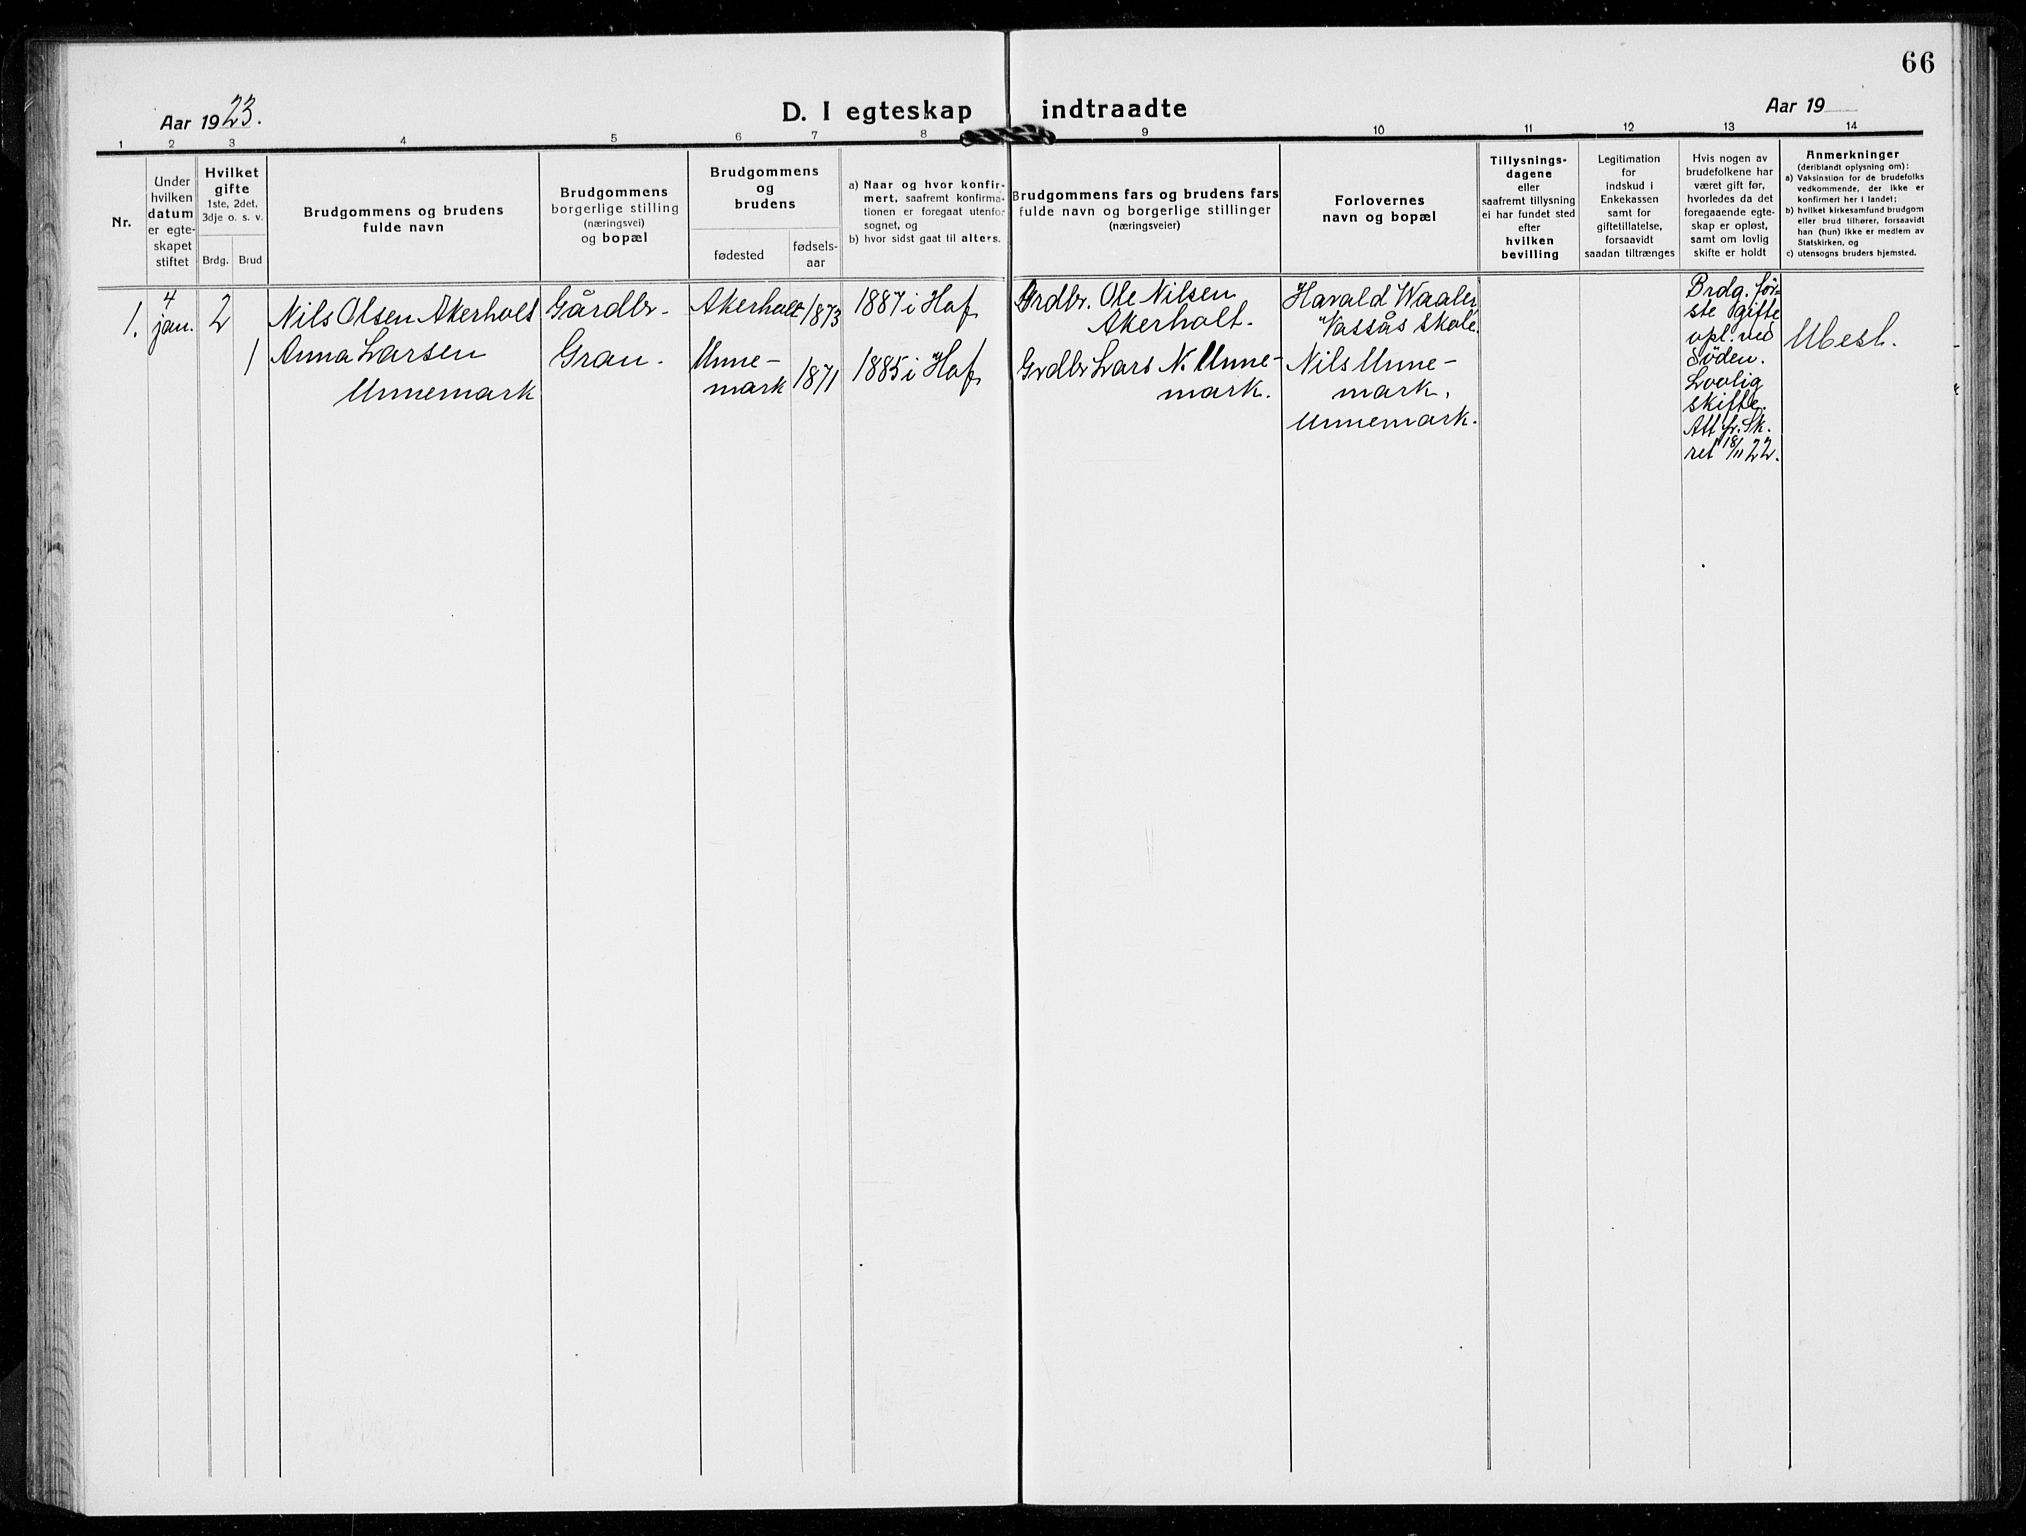 66
Aar 1923.
D. I egteskap indtraadte
Aar 19
1 2 3 4 5 6 7 8 9 10 11 12 13 14
Nr.
Under
hvilken
datum
er egte-
skapet
stiftet
Hvilket
gifte
1ste, 2det,
3dje o. s. v.
Brdg. Brud
Brudgommens og brudens
fulde navn
Brudgommens
borgerlige stilling
(næringsvei)
og bopæl
Brudgommens
og
brudens
fødested
fødsels-
aar
a) Naar og hvor konfir-
mert, saafremt konfirma-
tionen er foregaat utenfor
sognet, og
b) hvor sidst gaat til alters.
Brudgommens fars og brudens fars
fulde navn og borgerlige stillinger
(næringsveier)
Forlovernes
navn og bopæl
Tillysnings-
dagene
eller
saafremt tillysning
ei har fundet sted
efter
hvilken
bevilling
Legitimation
for
indskud i
Enkekassen
samt for
giftetillatelse,
forsaavidt
saadan tiltrænges
Hvis nogen av
brudefolkene har
været gift før,
hvorledes da det
foregaaende egte-
skap er opløst,
samt om lovlig
skifte er holdt
Anmerkninger
(deriblandt oplysning om):
a) Vaksination for de brudefolks
vedkommende, der ikke er
konfirmert her i landet;
b) hvilket kirkesamfund brudgom
eller brud tilhører, forsaavidt
han (hun) ikke er medlem av
Statskirken, og
c) utensogns bruders hjemsted.
1.
4
jan.
2
Nils Olsen Akerholt
Gårdbr.
Akerholt
1873
1887 i Hof
Grdbr. Ole Nilsen
Akerholt.
Harald Waaler,
Vassås skole.
Brdg. før-
ste gifte
opl. ved
døden.
Lovlig
skifte.
Att. fr. Sk.
ret 18/11 22.
Ubesl.
1
Anna Larsen
Unnemark
Gran.
Unne-
mark
1871
1885 i Hof
Grdbr Lars N. Unne-
mark.
Nils Unne-
mark,
Unnemark.